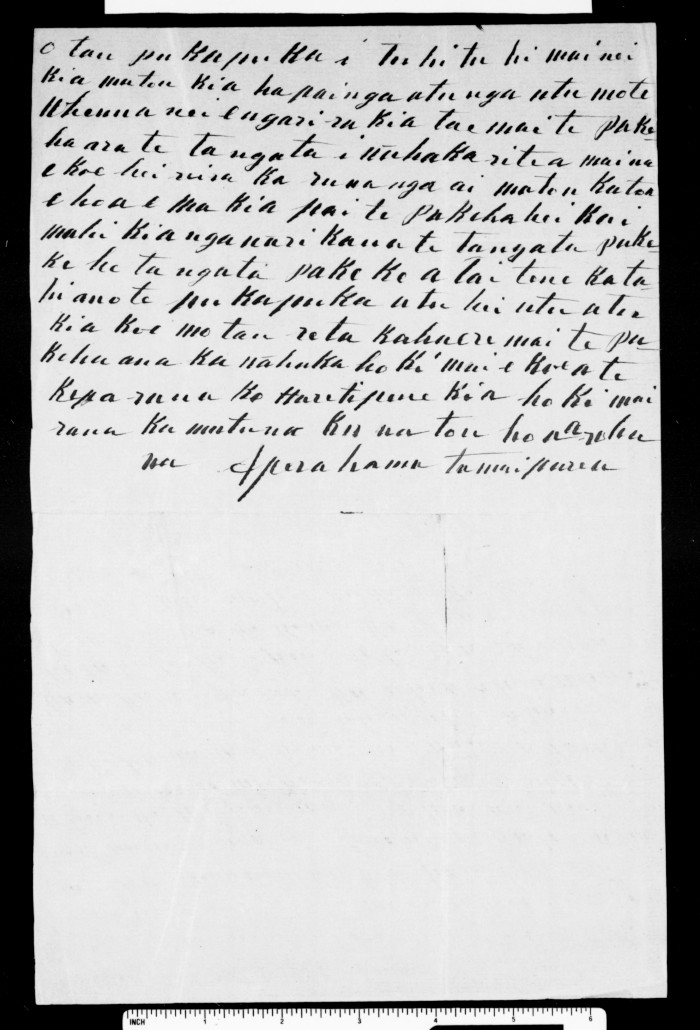 o tau pukapuka i tuhi tu hi mai nei
kia matou kia hapainga utu nga utu mo te
Whenua nei engari ra kia tae mai te pake
ha ara te tangata i whakaritea maina
e koe hei reira ka runanga ai matou katoa
e hoa e ma kia pai te pakeha hei kai
mahi kia nga nari kaua te tangata pake-
ke he tangata pakeke a tai tene kata-
hi ano te pukapuka utu hei utu atu
kia koe mo tau reta kahuere mai te pa-
keha ana ka wahaka hoki mai e koe a te
Kepa raua ko Haretipene kia hoki mai
raua ka mutu na na tou hoa aroha
na Aperahama tamaiparea
INCH 1 2 3 4 5 6